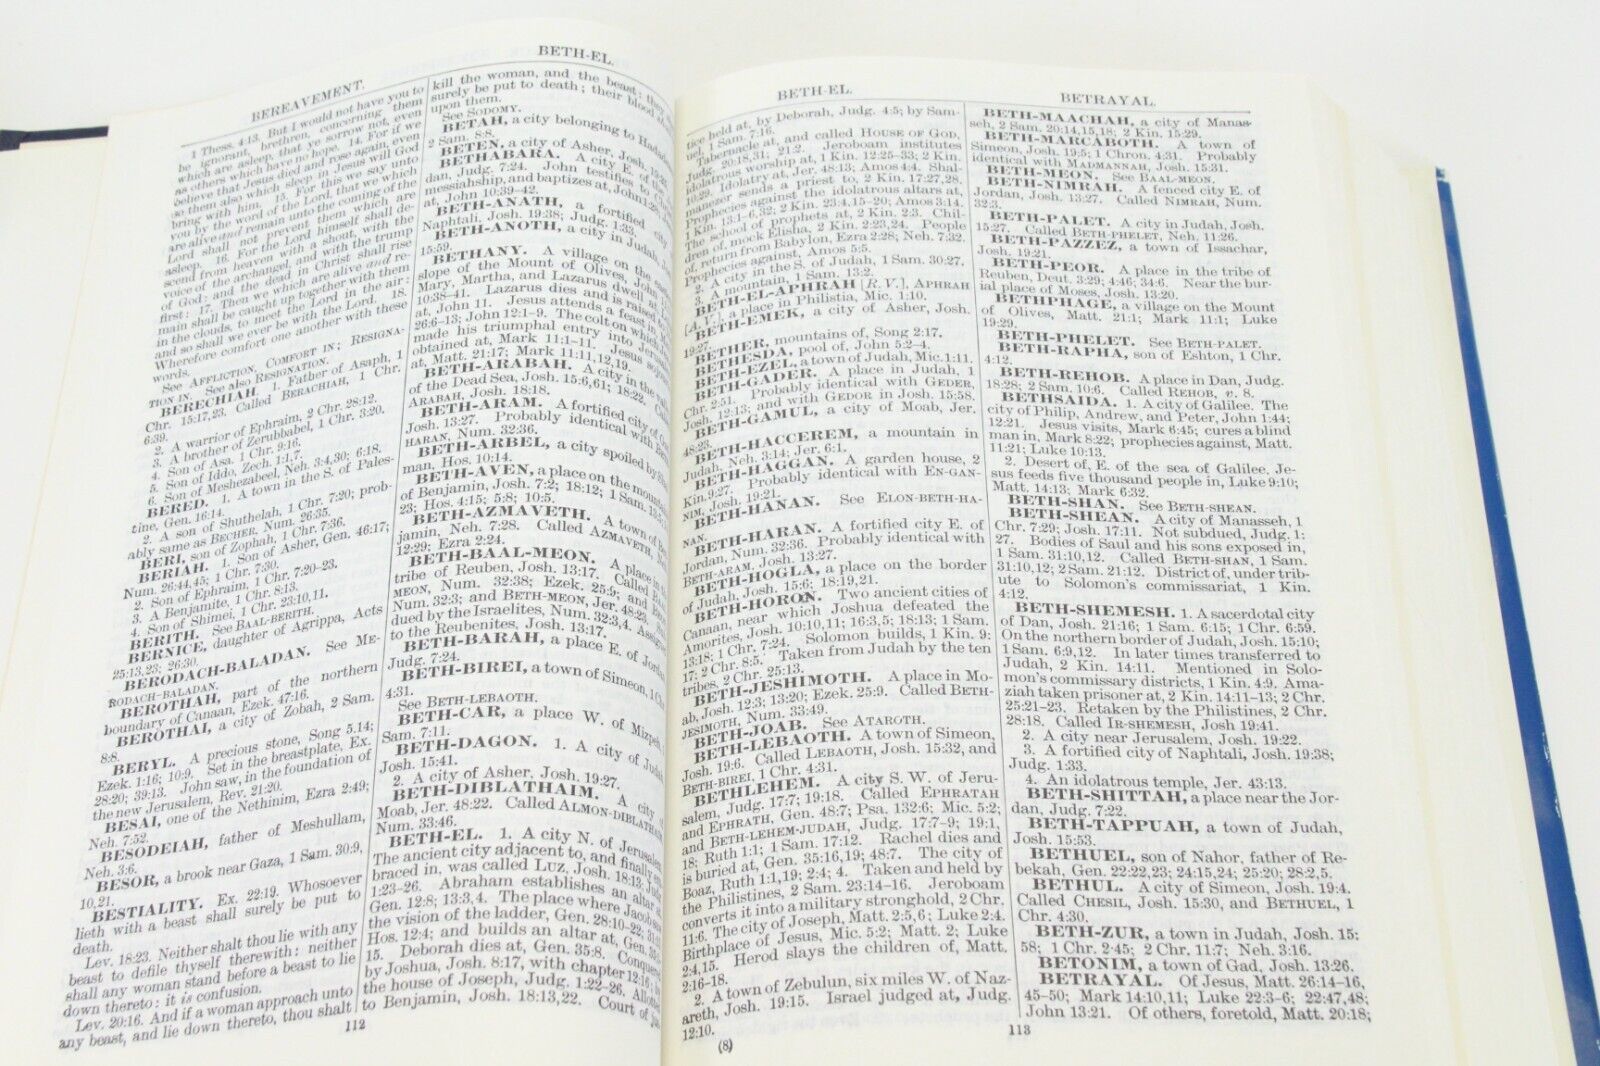 BEREAVEMENT.
BETH-EL.
1 Thess. 4:13. But I would not have you to
be ignorant, brethren, concerning them
which are asleep, that ye sorrow not, even
as others which have no hope. 14. For if we
believe that Jesus died and rose again, even
so them also which sleep in Jesus will God
bring with him. 15. For this we say unto
you by the word of the Lord, that we which
are alive and remain unto the coming of the
Lord shall not prevent them which are
asleep. 16. For the Lord himself shall de-
scend from heaven with a shout, with the
voice of the archangel, and with the trump
of God: and the dead in Christ shall rise
first: 17. Then we which are alive and re-
main shall be caught up together with them
in the clouds, to meet the Lord in the air:
and so shall we ever be with the Lord. 18.
Wherefore comfort one another with these
words.
See AFFLICTION, COMFORT IN; RESIGNA-
TION IN. See also RESIGNATION.
BERECHIAH. 1. Father of Asaph, 1
Chr. 15:17,23. Called BERACHIAH, 1 Chr.
6:39.
2. A warrior of Ephraim, 2 Chr. 28:12.
3. A brother of Zerubbabel, 1 Chr. 3:20.
4. Son of Asa, 1 Chr. 9:16.
5. Son of Iddo, Zech. 1:1,7.
6. Son of Meshezabeel, Neh. 3:4,30; 6:18.
BERED. 1. A town in the S. of Pales-
tine, Gen. 16:14.
2. A son of Shuthelah, 1 Chr. 7:20; prob-
ably same as BECHER, Num. 26:35.
BERI, son of Zophah, 1 Chr. 7:36.
BERIAH. 1. Son of Asher, Gen. 46:17;
Num. 26:44,45; 1 Chr. 7:30.
2. Son of Ephraim, 1 Chr. 7:20-23.
3. A Benjamite, 1 Chr. 8:13.
4. Son of Shimei, 1 Chr. 23:10,11.
BERITH. See BAAL-BERITH.
BERNICE, daughter of Agrippa, Acts
25:13,23; 26:30.
BERODACH-BALADAN. See ME-
RODACH-BALADAN.
BEROTHAH, part of the northern
boundary of Canaan, Ezek. 47:16.
BEROTHAI, a city of Zobah, 2 Sam.
8:8.
BERYL. A precious stone, Song 5:14;
Ezek. 1:16; 10:9. Set in the breastplate, Ex.
28:20; 39:13. John saw, in the foundation of
the new Jerusalem, Rev. 21:20.
BESAI, one of the Nethinim, Ezra 2:49;
Neh. 7:52.
BESODEIAH, father of Meshullam,
Neh. 3:6.
BESOR, a brook near Gaza, 1 Sam. 30:9,
10,21.
BESTIALITY. Ex. 22:19. Whosoever
lieth with a beast shall surely be put to
death.
Lev. 18:23. Neither shalt thou lie with any
beast to defile thyself therewith: neither
shall any woman stand before a beast to lie
down thereto: it is confusion.
Lev. 20:16. And if a woman approach unto
any beast, and lie down thereto, thou shalt
kill the woman, and the beast: they
surely be put to death; their blood
upon them.
See SODOMY.
BETAH, a city belonging to
2 Sam. 8:8.
BETEN, a city of Asher, Josh. 19:25.
BETHABARA. A city E. of the
dan, Judg. 7:24. John testifies to
messiahship, and baptizes at, John 1:28
at, John 10:39-42.
BETH-ANATH, a fortified city
Naphtali, Josh. 19:38; Judg. 1:33.
BETH-ANOTH, a city in Judah,
15:59.
BETHANY. A village on the
slope of the Mount of Olives, John
Mary, Martha, and Lazarus dwell at,
10:38-41. Lazarus dies and is raised
at, John 11. Jesus attends a feast in,
26:6-13; John 12:1-9. The colt on which
made his triumphal entry into
obtained at, Mark 11:1-11. Jesus
at, Matt. 21:17; Mark 11:11,12,19.
BETH-ARABAH. A city in the
of the Dead Sea, Josh. 15:6,61; 18:22.
ARABAH, Josh. 18:18.
BETH-ARAM. A fortified city of
Josh. 13:27. Probably identical with
HARAN, Num. 32:36.
BETH-ARBEL, a city spoiled by
man, Hos. 10:14.
BETH-AVEN, a place on the
of Benjamin, Josh. 7:2; 18:12; 1 Sam. 13:5
23; Hos. 4:15; 5:8; 10:5.
BETH-AZMAVETH. A town of
jamin, Neh. 7:28. Called AZMAVETH,
12:29; Ezra 2:24.
BETH-BAAL-MEON. A place in the
tribe of Reuben, Josh. 13:17. Called
MEON, Num. 32:38; Ezek. 25:9; and
Num. 32:3; and BETH-MEON, Jer. 48:23.
dued by the Israelites, Num. 32:3,4.
to the Reubenites, Josh. 13:17.
BETH-BARAH, a place E. of
Judg. 7:24.
BETH-BIREI, a town of Simeon,
4:31.
See BETH-LEBAOTH.
BETH-CAR, a place W. of Mizpeh,
Sam. 7:11.
BETH-DAGON. 1. A city of
Josh. 15:41.
2. A city of Asher, Josh. 19:27.
BETH-DIBLATHAIM. A city of
Moab, Jer. 48:22. Called ALMON-DIBLATHAIM
Num. 33:46.
BETH-EL. 1. A city N. of Jerusalem
The ancient city adjacent to, and finally
braced in, was called LUZ, Josh. 18:13;
1:23-26. Abraham establishes an altar at,
Gen. 12:8; 13:3,4. The place where Jacob
the vision of the ladder, Gen. 28:10-22;
Hos. 12:4; and builds an altar at, Gen.
15. Deborah dies at, Gen. 35:8. Conquered
by Joshua, Josh. 8:17, with chapter 12:16;
the house of Joseph, Judg. 1:22-26.
to Benjamin, Josh. 18:13,22. Court of
112
BETH-EL.
BETRAYAL.
tice held at, by Deborah, Judg. 4:5; by Sam-
uel, 1 Sam. 7:16.
Tabernacle at, and called HOUSE OF GOD,
Judg. 20:18,31; 21:2. Jeroboam institutes
idolatrous worship at, 1 Kin. 12:25-33; 2 Kin.
10:29. Idolatry at, Jer. 48:13; Amos 4:4. Shal-
manezer sends a priest to, 2 Kin. 17:27,28.
Prophecies against the idolatrous altars at,
1 Kin. 13:1-6,32; 2 Kin. 23:4,15-20; Amos 3:14.
The school of prophets at, 2 Kin. 2:3. Chil-
dren of, mock Elisha, 2 Kin. 2:23,24. People
of, return from Babylon, Ezra 2:28; Neh. 7:32.
Prophecies against, Amos 5:5.
2. A city in the S. of Judah, 1 Sam. 30:27.
3. A mountain, 1 Sam. 13:2.
BETH-EL-APHRAH [R.V.], APHRAH
[A.V.], a place in Philistia, Mic. 1:10.
BETH-EMEK, a city of Asher, Josh.
19:27.
BETHER, mountains of, Song 2:17.
BETHESDA, pool of, John 5:2-4.
BETH-EZEL, a town of Judah, Mic. 1:11.
BETH-GADER. A place in Judah, 1
Chr. 2:51. Probably identical with GEDER,
Josh. 12:13; and with GEDOR in Josh. 15:58.
BETH-GAMUL, a city of Moab, Jer.
48:23.
BETH-HACCEREM, a mountain in
Judah, Neh. 3:14; Jer. 6:1.
BETH-HAGGAN. A garden house, 2
Kin. 9:27. Probably identical with EN-GAN-
NIM, Josh. 19:21.
BETH-HANAN. See ELON-BETH-HA-
NAN.
BETH-HARAN. A fortified city E. of
Jordan, Num. 32:36. Probably identical with
BETH-ARAM, Josh. 13:27.
BETH-HOGLA, a place on the border
of Judah, Josh. 15:6; 18:19,21.
BETH-HORON. Two ancient cities of
Canaan, near which Joshua defeated the
Amorites, Josh. 10:10,11; 16:3,5; 18:13; 1 Sam.
13:18; 1 Chr. 7:24. Solomon builds, 1 Kin. 9:
17; 2 Chr. 8:5. Taken from Judah by the ten
tribes, 2 Chr. 25:13.
BETH-JESHIMOTH. A place in Mo-
ab, Josh. 12:3; 13:20; Ezek. 25:9. Called BETH-
JESIMOTH, Num. 33:49.
BETH-JOAB. See ATAROTH.
BETH-LEBAOTH. A town of Simeon,
Josh. 19:6. Called LEBAOTH, Josh. 15:32, and
BETH-BIREI, 1 Chr. 4:31.
BETHLEHEM. A city S. W. of Jeru-
salem, Judg. 17:7; 19:18. Called EPHRATAH
and EPHRATH, Gen. 48:7; Psa. 132:6; Mic. 5:2;
and BETH-LEHEM-JUDAH, Judg. 17:7-9; 19:1,
18; Ruth 1:1; 1 Sam. 17:12. Rachel dies and
is buried at, Gen. 35:16,19; 48:7. The city of
Boaz, Ruth 1:1,19; 2:4; 4. Taken and held by
the Philistines, 2 Sam. 23:14-16. Jeroboam
converts it into a military stronghold, 2 Chr.
11:6. The city of Joseph, Matt. 2:5,6; Luke 2:4.
Birthplace of Jesus, Mic. 5:2; Matt. 2; Luke
2:4,15. Herod slays the children of, Matt.
2:16-18.
2. A town of Zebulun, six miles W. of Naz-
areth, Josh. 19:15. Israel judged at, Judg.
12:10.
(8)
BETH-MAACHAH, a city of Manas-
seh, 2 Sam. 20:14,15,18; 2 Kin. 15:29.
BETH-MARCABOTH. A town of
Simeon, Josh. 19:5; 1 Chron. 4:31. Probably
identical with MADMANNAH, Josh. 15:31.
BETH-MEON. See BAAL-MEON.
BETH-NIMRAH. A fenced city E. of
Jordan, Josh. 13:27. Called NIMRAH, Num.
32:3.
BETH-PALET. A city in Judah, Josh.
15:27. Called BETH-PHELET, Neh. 11:26.
BETH-PAZZEZ, a town of Issachar,
Josh. 19:21.
BETH-PEOR. A place in the tribe of
Reuben, Deut. 3:29; 4:46; 34:6. Near the bur-
ial place of Moses, Josh. 13:20.
BETHPHAGE, a village on the Mount
of Olives, Matt. 21:1; Mark 11:1; Luke
19:29.
BETH-PHELET. See BETH-PALET.
BETH-RAPHA, son of Eshton, 1 Chr.
4:12.
BETH-REHOB. A place in Dan, Judg.
18:28; 2 Sam. 10:6. Called REHOB, v. 8.
BETHSAIDA. 1. A city of Galilee. The
city of Philip, Andrew, and Peter, John 1:44;
12:21. Jesus visits, Mark 6:45; cures a blind
man in, Mark 8:22; prophecies against, Matt.
11:21; Luke 10:13.
2. Desert of, E. of the sea of Galilee. Je-
sus feeds five thousand people in, Luke 9:10;
Matt. 14:13; Mark 6:32.
BETH-SHAN. See BETH-SHEAN.
BETH-SHEAN. A city of Manasseh, 1
Chr. 7:29; Josh. 17:11. Not subdued, Judg. 1:
27. Bodies of Saul and his sons exposed in,
1 Sam. 31:10,12. Called BETH-SHAN, 1 Sam.
31:10,12; 2 Sam. 21:12. District of, under trib-
ute to Solomon's commissariat, 1 Kin.
4:12.
BETH-SHEMESH. 1. A sacerdotal city
of Dan, Josh. 21:16; 1 Sam. 6:15; 1 Chr. 6:59.
On the northern border of Judah, Josh. 15:10;
1 Sam. 6:9,12. In later times transferred to
Judah, 2 Kin. 14:11. Mentioned in Solo-
mon's commissary districts, 1 Kin. 4:9. Ama-
ziah taken prisoner at, 2 Kin. 14:11-13; 2 Chr.
25:21-23. Retaken by the Philistines, 2 Chr.
28:18. Called IR-SHEMESH, Josh 19:41.
2. A city near Jerusalem, Josh. 19:22.
3. A fortified city of Naphtali, Josh. 19:38;
Judg. 1:33.
4. An idolatrous temple, Jer. 43:13.
BETH-SHITTAH, a place near the Jor-
dan, Judg. 7:22.
BETH-TAPPUAH, a town of Judah,
Josh. 15:53.
BETHUEL, son of Nahor, father of Re-
bekah, Gen. 22:22,23; 24:15,24; 25:20; 28:2,5.
BETHUL. A city of Simeon, Josh. 19:4.
Called CHESIL, Josh. 15:30, and BETHUEL, 1
Chr. 4:30.
BETH-ZUR, a town in Judah, Josh. 15:
58; 1 Chr. 2:45; 2 Chr. 11:7; Neh. 3:16.
BETONIM, a town of Gad, Josh. 13:26.
BETRAYAL. Of Jesus, Matt. 26:14-16,
45-50; Mark 14:10,11; Luke 22:3-6; 22:47,48;
John 13:21. Of others, foretold, Matt. 20:18;
113